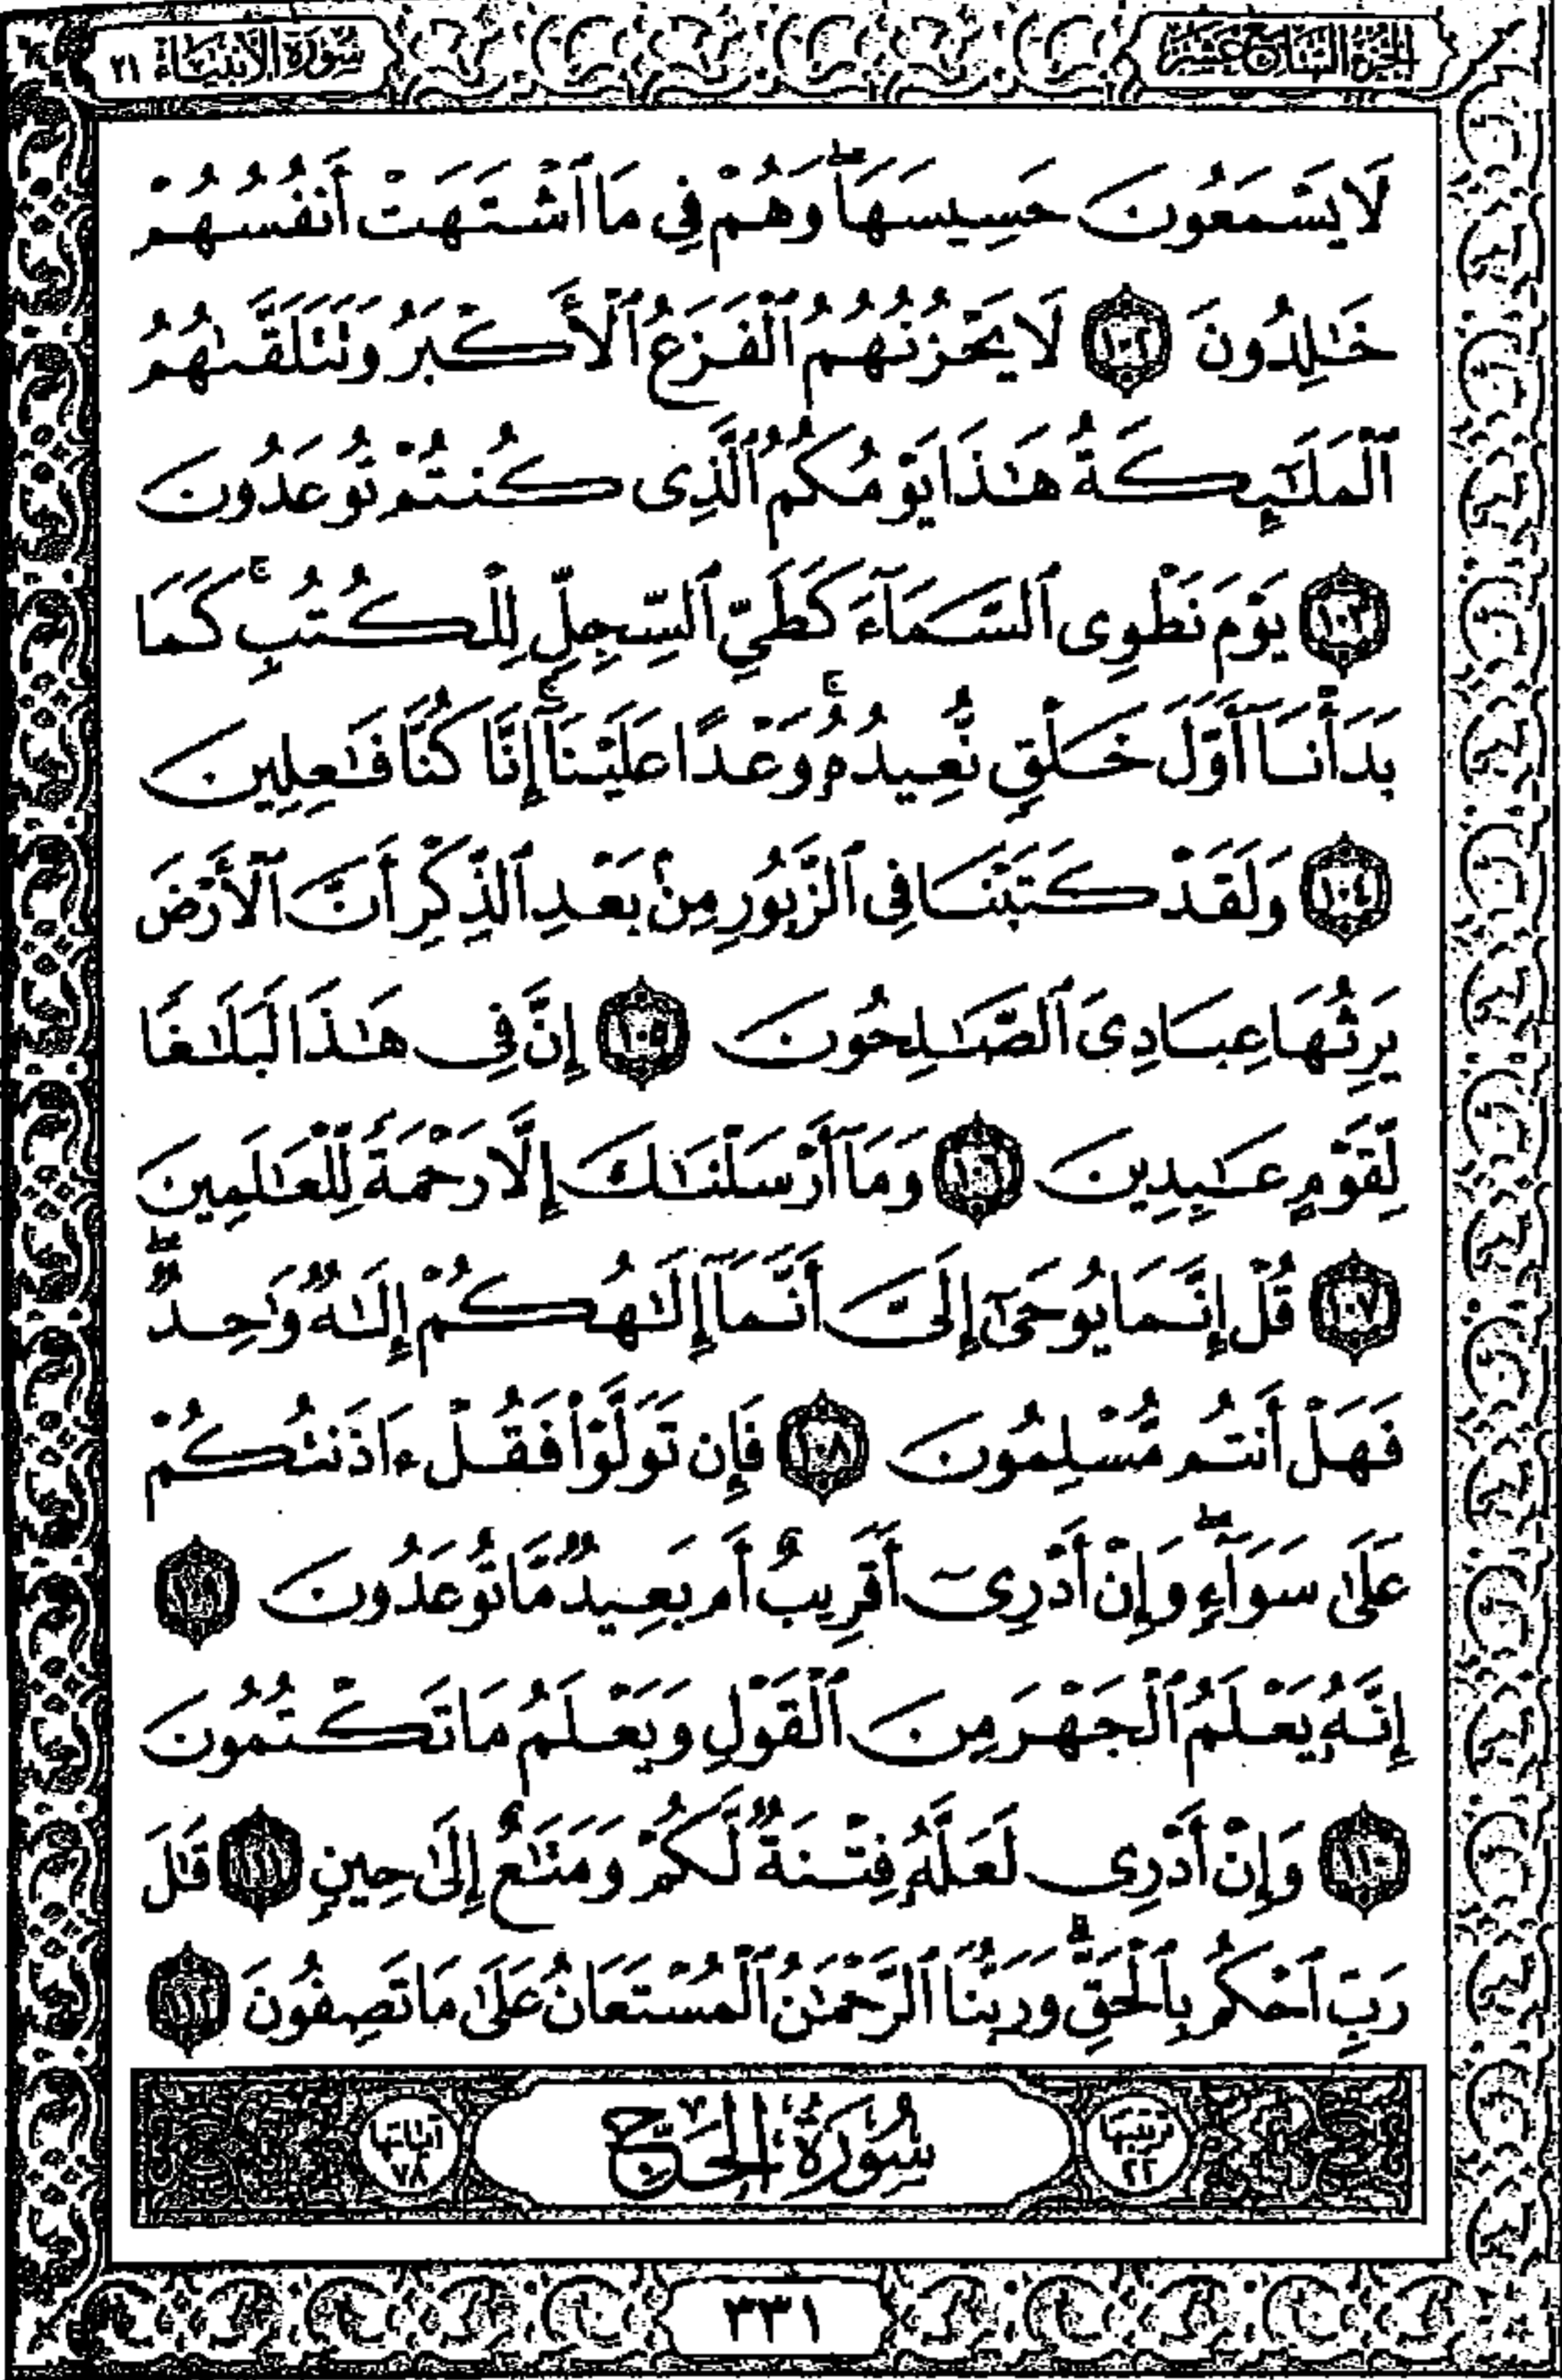 الجزء السابع عشر
سورة الأنبياء ٢١
لَا يَسْمَعُونَ حَسِيسَهَا ۖ وَهُمْ فِى مَا ٱشْتَهَتْ أَنفُسُهُمْ
خَٰلِدُونَ ١٠٢ لَا يَحْزُنُهُمُ ٱلْفَزَعُ ٱلْأَكْبَرُ وَتَتَلَقَّىٰهُمُ
ٱلْمَلَٰٓئِكَةُ هَٰذَا يَوْمُكُمُ ٱلَّذِى كُنتُمْ تُوعَدُونَ
١٠٣ يَوْمَ نَطْوِى ٱلسَّمَآءَ كَطَىِّ ٱلسِّجِلِّ لِلْكُتُبِ ۚ كَمَا
بَدَأْنَآ أَوَّلَ خَلْقٍ نُّعِيدُهُۥ ۚ وَعْدًا عَلَيْنَآ ۚ إِنَّا كُنَّا فَٰعِلِينَ
١٠٤ وَلَقَدْ كَتَبْنَا فِى ٱلزَّبُورِ مِنۢ بَعْدِ ٱلذِّكْرِ أَنَّ ٱلْأَرْضَ
يَرِثُهَا عِبَادِىَ ٱلصَّٰلِحُونَ ١٠٥ إِنَّ فِى هَٰذَا لَبَلَٰغًا
لِّقَوْمٍ عَٰبِدِينَ ١٠٦ وَمَآ أَرْسَلْنَٰكَ إِلَّا رَحْمَةً لِّلْعَٰلَمِينَ
١٠٧ قُلْ إِنَّمَا يُوحَىٰٓ إِلَىَّ أَنَّمَآ إِلَٰهُكُمْ إِلَٰهٌ وَٰحِدٌ ۖ
فَهَلْ أَنتُم مُّسْلِمُونَ ١٠٨ فَإِن تَوَلَّوْا۟ فَقُلْ ءَاذَنتُكُمْ
عَلَىٰ سَوَآءٍ ۖ وَإِنْ أَدْرِىٓ أَقَرِيبٌ أَم بَعِيدٌ مَّا تُوعَدُونَ ١٠٩
إِنَّهُۥ يَعْلَمُ ٱلْجَهْرَ مِنَ ٱلْقَوْلِ وَيَعْلَمُ مَا تَكْتُمُونَ
١١٠ وَإِنْ أَدْرِى لَعَلَّهُۥ فِتْنَةٌ لَّكُمْ وَمَتَٰعٌ إِلَىٰ حِينٍ ١١١ قَٰلَ
رَبِّ ٱحْكُم بِٱلْحَقِّ ۗ وَرَبُّنَا ٱلرَّحْمَٰنُ ٱلْمُسْتَعَانُ عَلَىٰ مَا تَصِفُونَ ١١٢
ترتيبها ٢٢ سُورَةُ الحَجِّ آياتها ٧٨
٣٣١